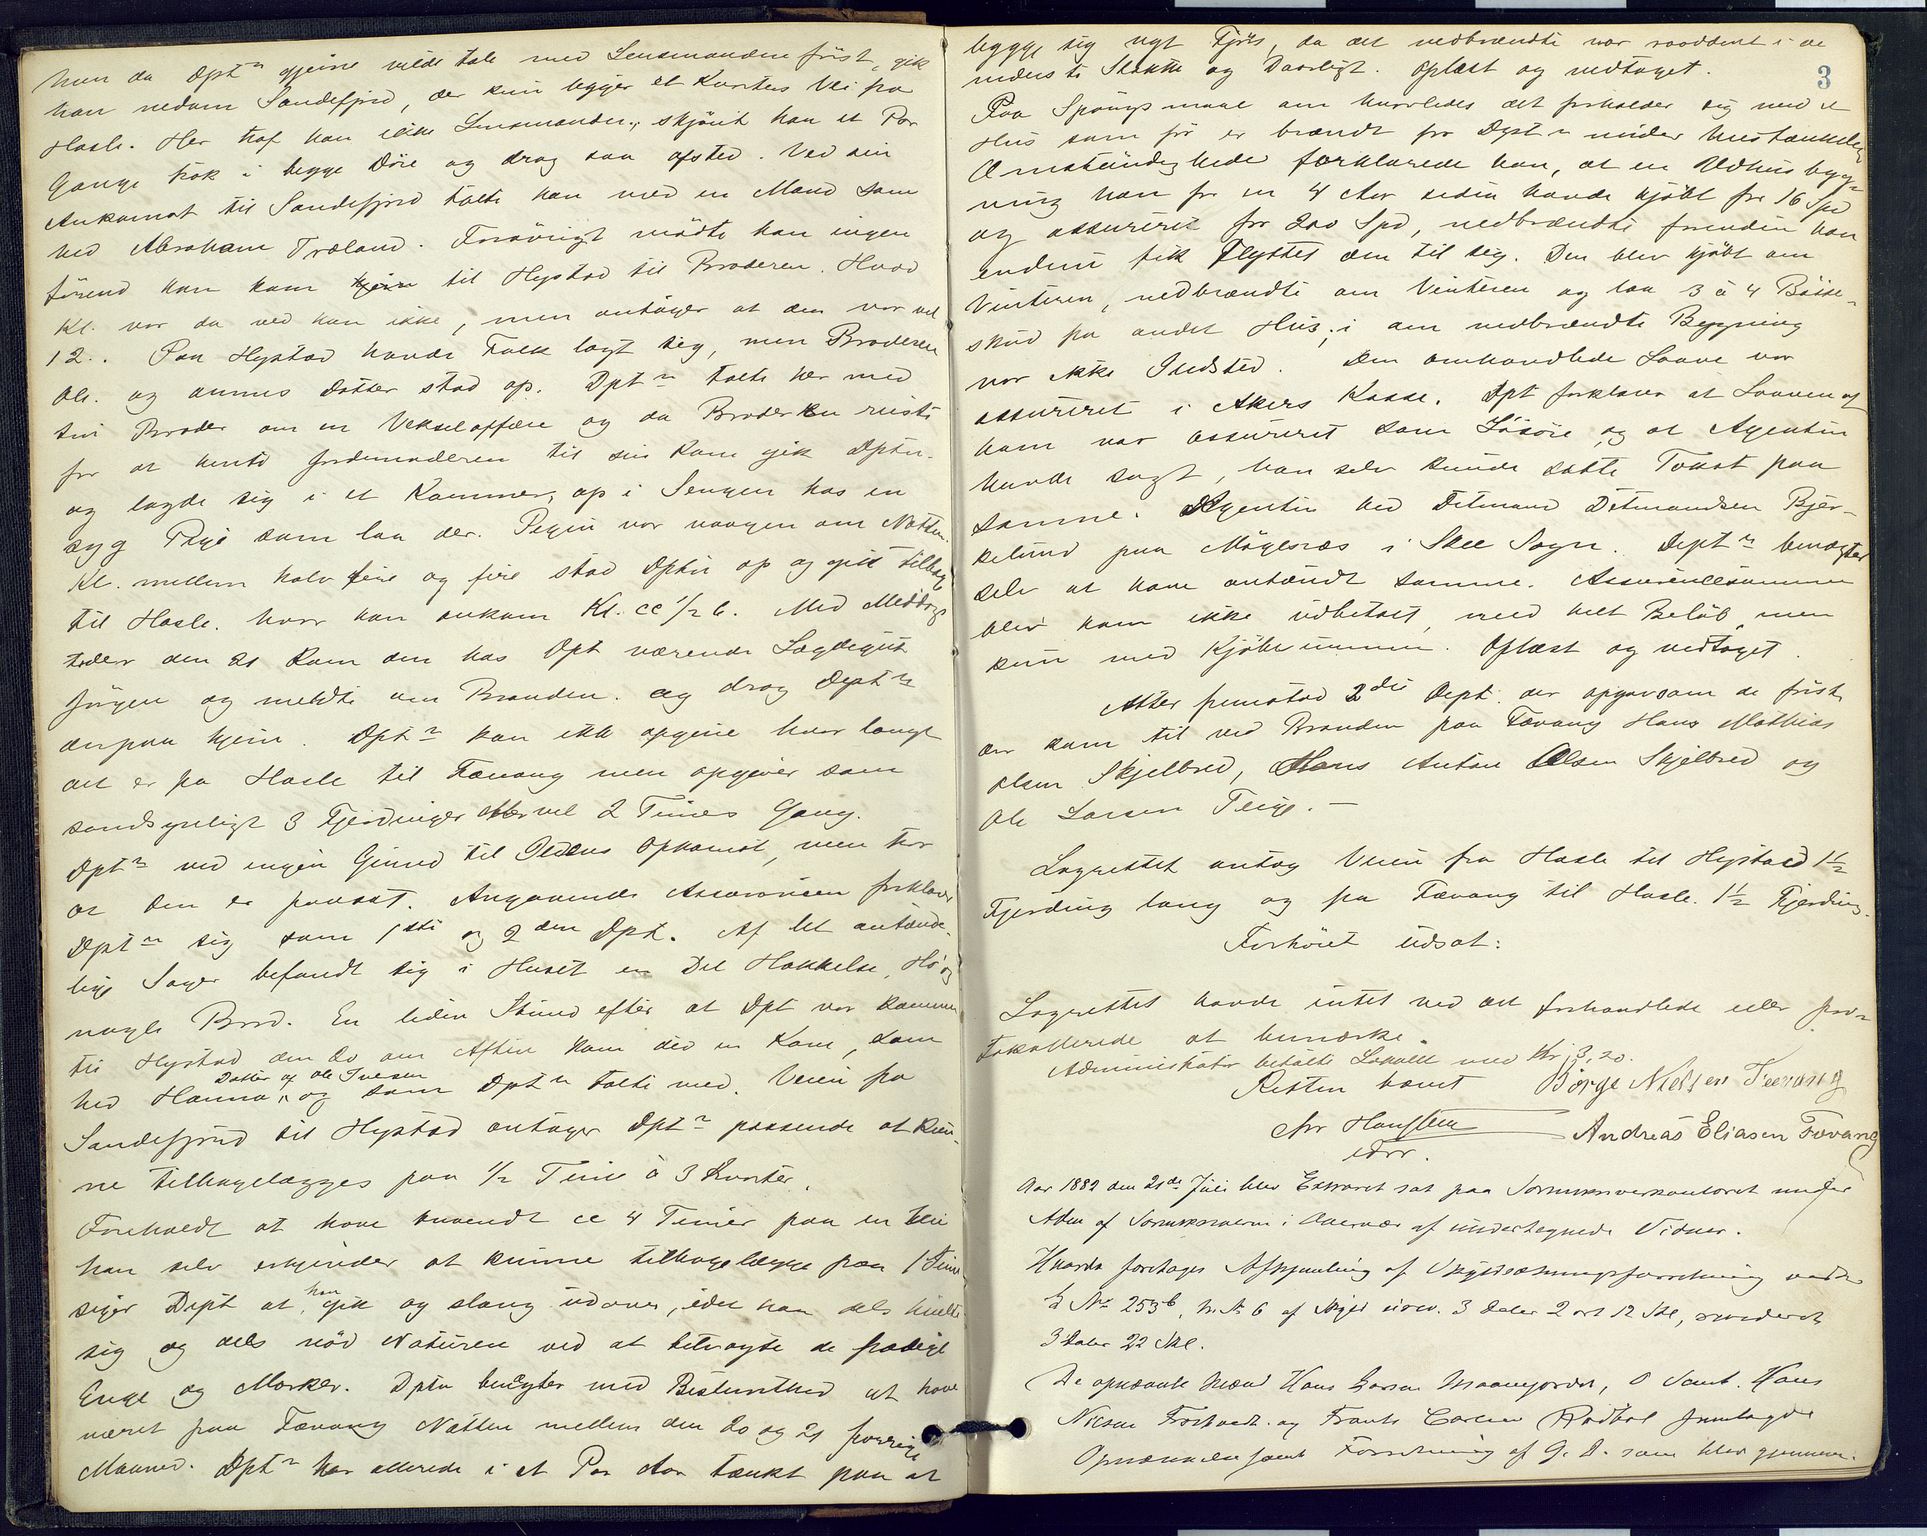 men da Dptn gjerne vilde tale med Lensmanden først, gik
han nedom Sandefjord, der kun ligger et Kvarters Vei fra
Hasle. Her traf han ikke Lensmanden, skjönt han et Par
Gange tok i begge Döre og drog saa afsted. Ved sin
Ankomst til Sandefjord talte han med en Mand som
hed Abraham Træland. Forøvrigt mödte han ingen
förend han kom hjem til Hystad til Broderen. Hvad
Kl. var da ved han ikke, men antager at den var vel
12. Paa Hystad havde Folk lagt sig, men Broderen
Ole og dennes Datter stod op. Dptn talte her med
sin Broder om en Vekselaffære og da Broderen reiste
for at hente Jordemoderen til sin Kone gik Dptn.
og lagde sig i et Kammer, op i Sengen hos en
syg Pige som laa der. Pigen var vaagen om Natten.
Kl. mellem halv fire og fire stod Dptn op og gik tilbage
til Hasle. hvor han ankom Kl. cc 1/2 6. Med Middags
tider den 21 kom den hos Dpt værende Lægdegut
Jörgen og meldte om Branden. og drog Dptn
derpaa hjem. Dptn kan ikke opgive hvor langt
det er fra Hasle til Fævang men opgiver som
sandsynligt 3 Fjerdinger eller vel 2 Timers Gang.
Dptn ved ingen Grund til Ildens Opkomst, men tror
at den er paasat. Angaaende Assurancen forklarer
Dptn sig som 1ste og 2den Dpt. Af let antænde-
lige Sager befandt sig i Huset en Del Hakkelse, Hö og
nogle Bord. En liden Stund efter at Dpt var kommen
til Hystad den 20 om Aftenen kom did en Kone, som
hed Hanna, Datter af Ole Iversen og som Dptn talte med. Veien fra
Sandefjord til Hystad antager Dptn passende at kun-
ne tilbagelægges paa 1/2 Time à 3 Kvarter.
Foreholdt at have anvendt cc 4 Timer paa en Vei
han selv erkjender at kunne tilbagelægge paa 1 Time
siger Dept at han gik og slang udover, idet han dels hvilte
sig og dels nöd Naturen ved at betragte de prægtige
Enge og Marker. Dptn benegter med Bestemthed at have
været paa Fævang Natten mellem den 20 og 21 forrige
Maaned. Dptn har allerede i et Par Aar tænkt paa at
3
bygge sig nyt Fjös, da det nedbrændte var raaddent i de
nederste Stokke og Daarligt. Oplæst og vedtaget.
Paa Spörgsmaal om hvorledes det forholder sig med et
Hus som för er brændt for Dptn under mistænkelige
Omstændigheder forklarede han, at en Udhusbyg-
ning han for en 4 Aar siden havde kjöbt for 16 Spd
og assureret for 200 Spd, nedbrændte forinden han
endnu fik flyttet den til sig. Den blev kjöbt om
Vinteren, nedbrændte om Vinteren og laa 3 à 4 Bösse-
skud fra andet Hus; i den nedbrændte Bygning
var ikke Ildsted. Den omhandlede Laave var
assureret i Akers Kasse. Dpt forklarer at Laaven af
ham var assureret som Lösöre og at Agenten
havde sagt, han selv kunde sætte Takst paa
samme. Agenten hed Ditmand Ditmandsen Bjer-
kelund paa Mögenæs i Skee Sogn. Deptn benægter
selv at have antændt samme. Assurancesummen
blev ham ikke udbetalt, med helt Belöb, men
kun med Kjöbesummen. Oplæst og vedtaget.
Atter fremstod 2den Dept. der opgav som de förste
der kom til ved Branden paa Fævang Hans Mathias
Olsen Skjelbred, Hans Anton Olsen Skjelbred og
Ole Larsen Teige. –
Lagrettet antog Veien fra Hasle til Hystad 1 1/2
Fjerding lang og fra Fævang til Hasle 1 1/2 Fjerding.
Forhöret udsat:
Lagrettet havde intet ved det forhandlede eller pro-
tokollerede at bemærke.
Administrator betalte Lokalet med Kr 3,20.
Retten hævet Börge Nielsen Feevang
Chr Hanssen Andreas Eliasen Fævang
edsv.
Aar 1882 den 21de Juli blev Extraret sat paa Sorenskriverkontoret under
Aden af Sorenskriveren i Overvær af undertegnede Vidner.
Hvorda foretages Afhjemling af Skyldsætningsforretning over
G No 253b, L. No 6 af Skyld 3 Daler 2 ort 12 Skl, revideret
3 Daler 22 Skl.
De opnævnte Mænd Hans Larsen Maanejordet, O Hans
Nilsen og Frants Carlsen Rødbøl fremlagde
Opnævnelse samt Forretning af G. D. som blev gjennem-